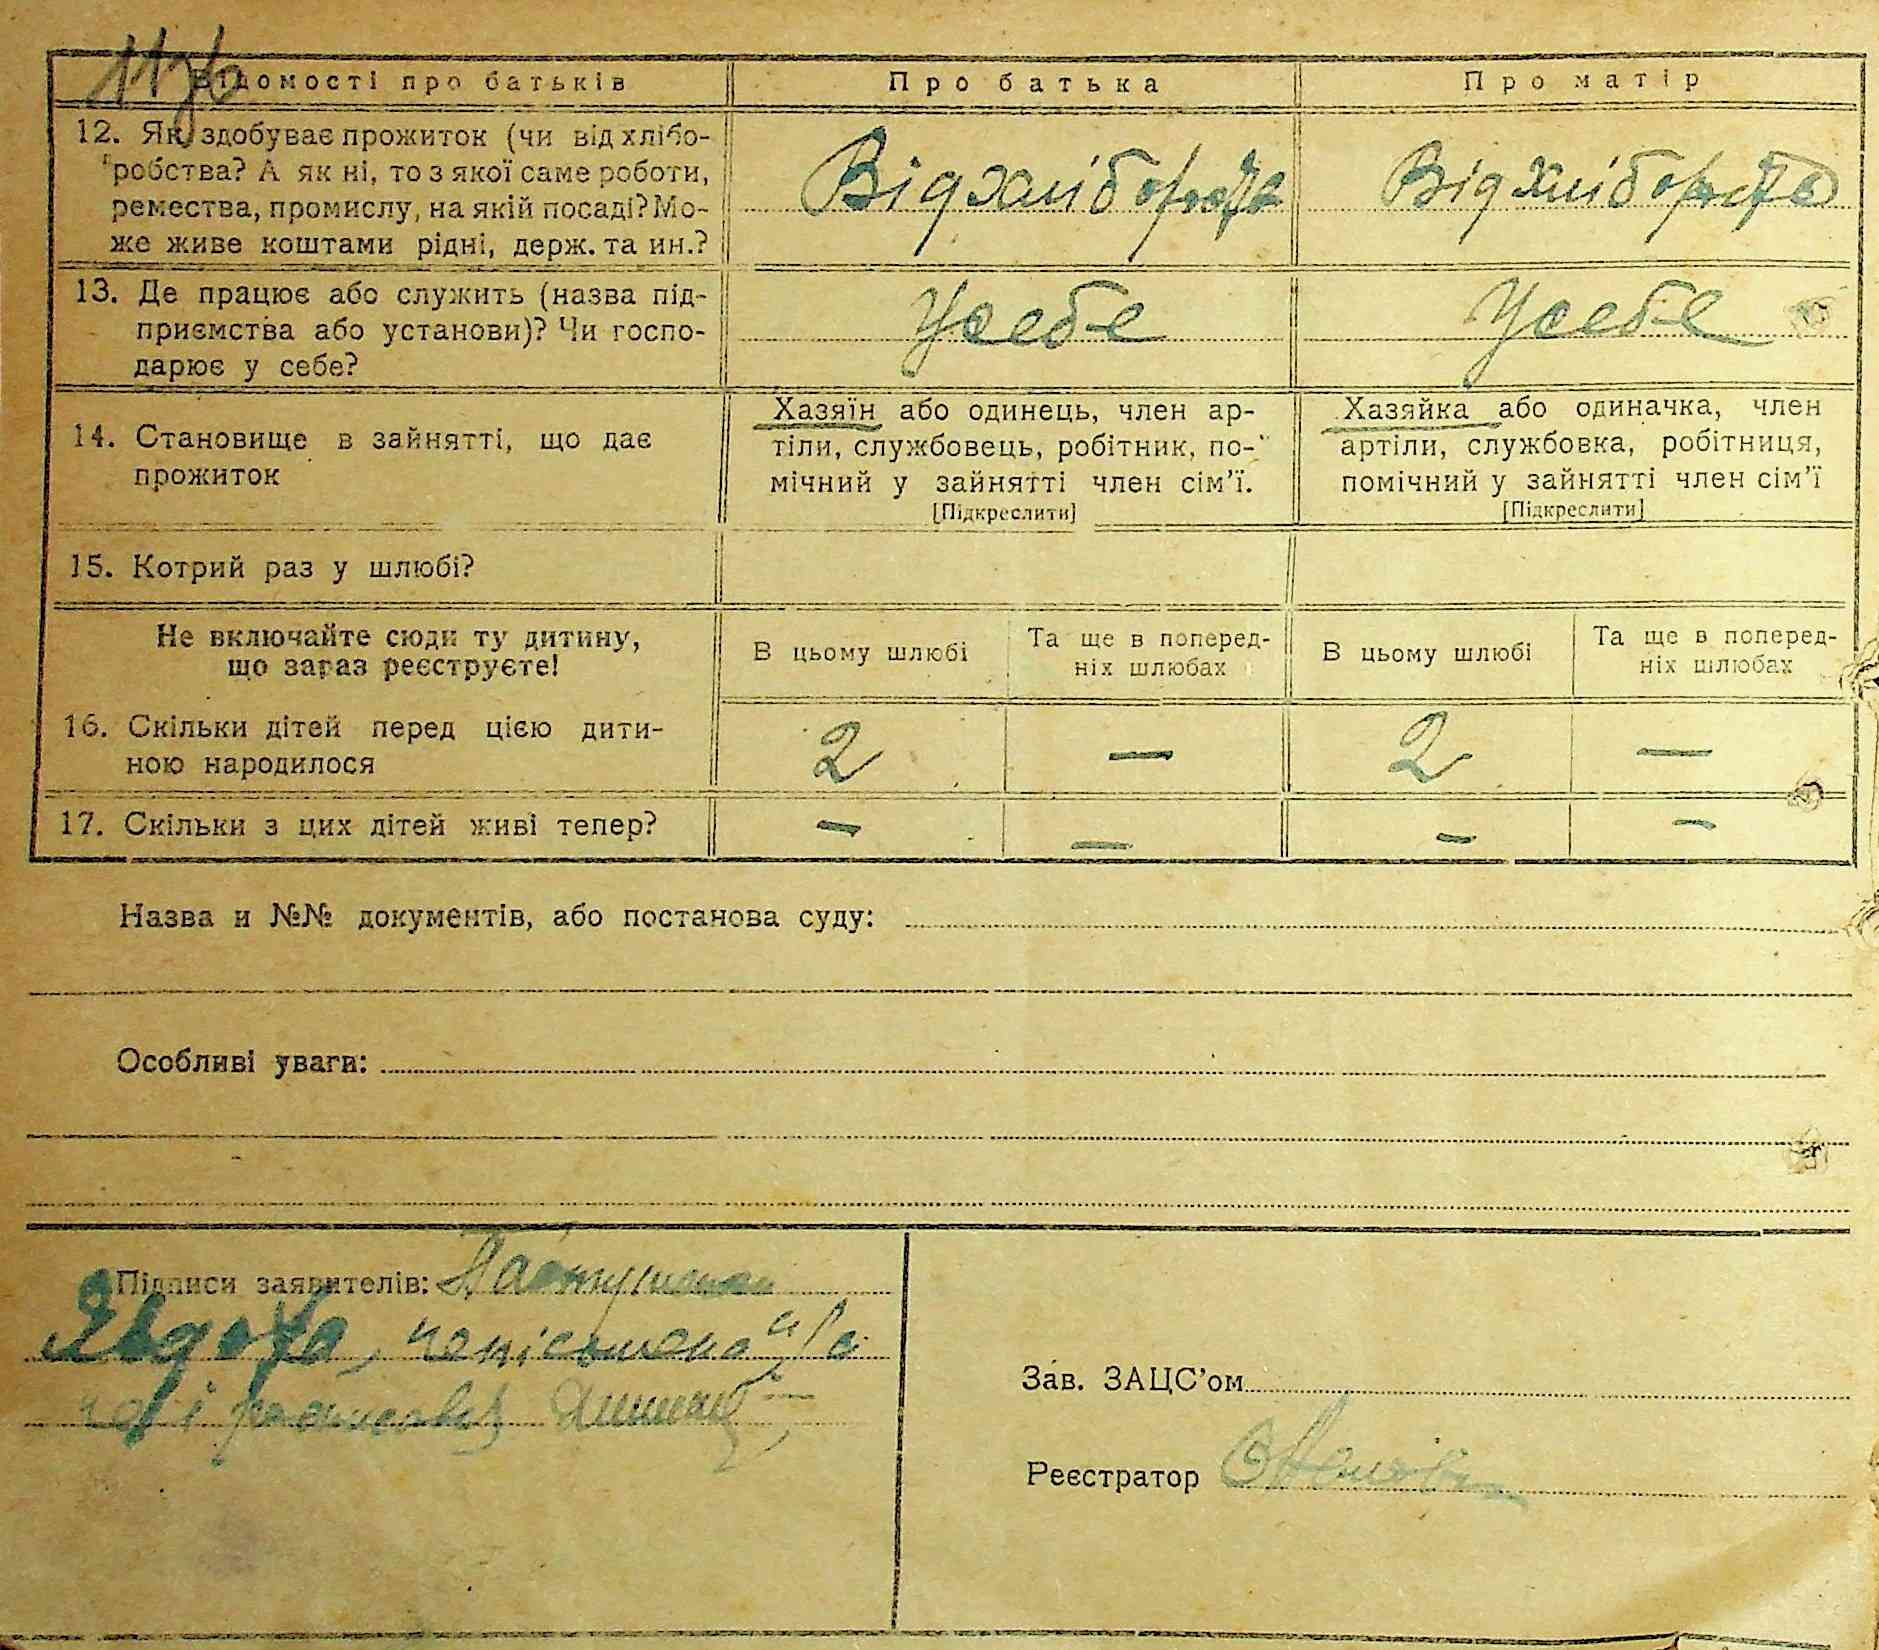 Відомості про батьків Про батька Про матір
12. Як здобуває прожиток (чи від хлібо-
робства? А як ні, то з якої саме роботи,
ремества, промислу, на якій посаді? Мо-
же живе коштами рідні, держ. та ин.?
Від хліборобства Від хліборобства
13. Де працює або служить (назва під-
приємства або установи)? Чи госпо-
дарює у себе?
У себе У себе
14. Становище в зайнятті, що дає
прожиток
Хазяїн або одинець, член ар-
тіли, службовець, робітник, по-
мічний у зайнятті член сім'ї.
[Підкреслити]
Хазяйка або одиначка, член
артіли, службовка, робітниця,
помічний у зайнятті член сім'ї
[Підкреслити]
15. Котрий раз у шлюбі?
Не включайте сюди ту дитину,
що зараз реєструєте!
В цьому шлюбі
Та ще в поперед-
ніх шлюбах
В цьому шлюбі
Та ще в поперед-
ніх шлюбах
16. Скільки дітей перед цією дити-
ною народилося
2 — 2 —
17. Скільки з цих дітей живі тепер?
— — — —
Назва и №№ документів, або постанова суду:
Особливі уваги:
Підписи заявителів:
Явдоха,
Зав. ЗАЦС'ом
Реєстратор